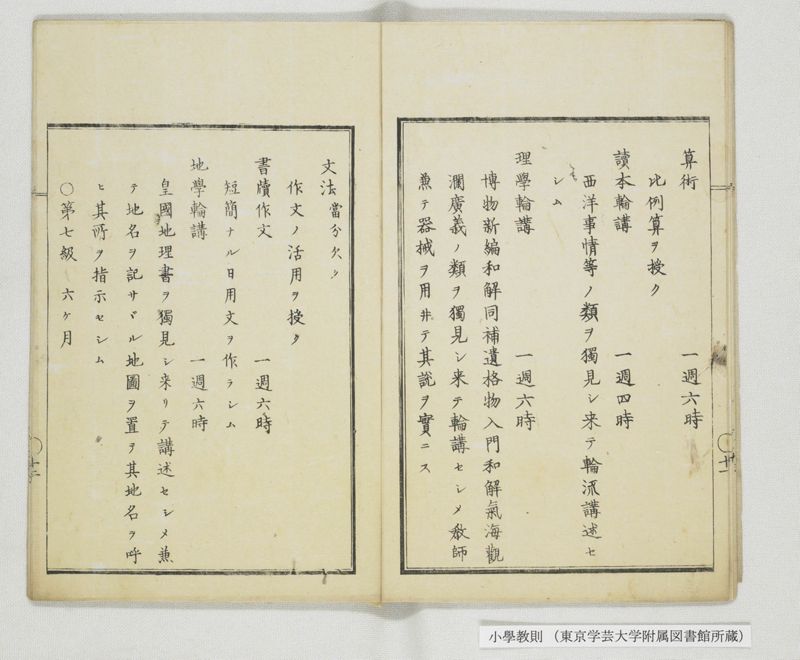 算術 一週六時
比例算ヲ授ク
讀本輪講 一週四時
西洋事情等ノ類ヲ獨見シ来テ輪流講述セ
シム
理學輪講 一週六時
博物新編和解同補遺格物入門和解氣海觀
瀾廣義ノ類ヲ獨見シ来テ輪講セシメ敎師
兼テ器械ヲ用ヰテ其説ヲ實ニス
十一
文法當分欠ク
作文ノ活用ヲ授ク
書牘作文 一週六時
短簡ナル日用文ヲ作ラシム
地學輪講 一週六時
皇國地理書ヲ獨見シ来リテ講述セシメ兼
テ地名ヲ記サヾル地圖ヲ置ヲ其地名ヲ呼
ヒ其所ヲ指示セシム
〇第七級 六ケ月
十二
小學教則 (東京学芸大学附属図書館所蔵)